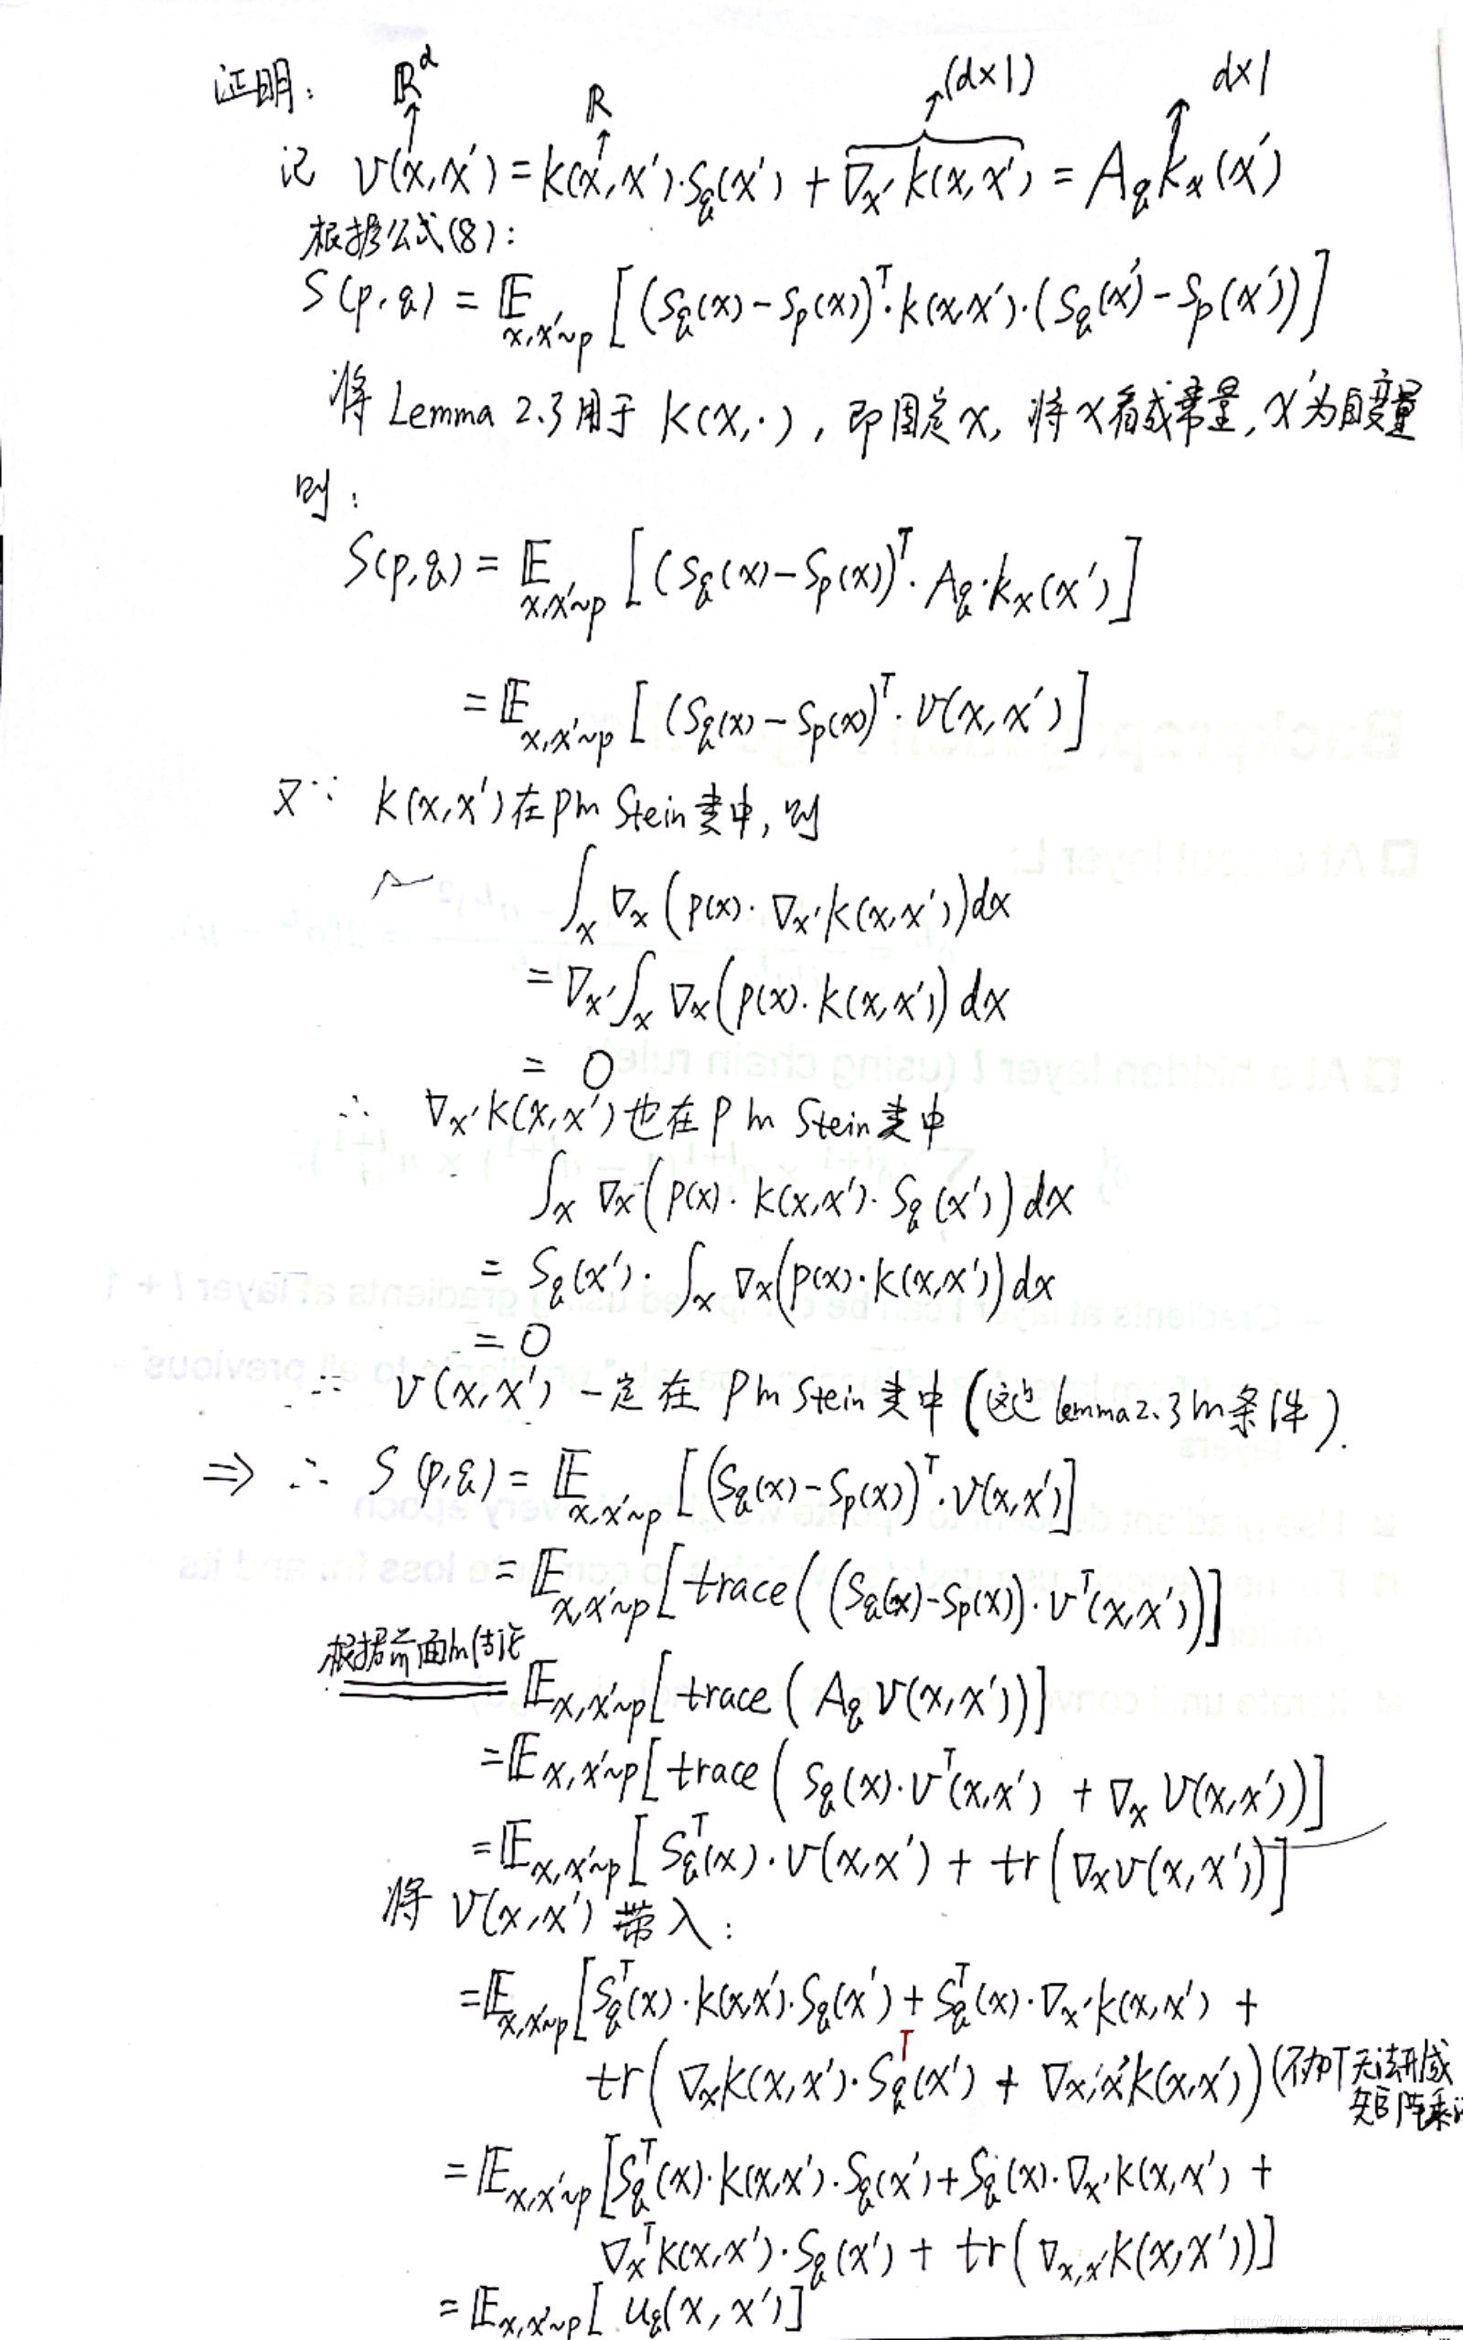 证明: ℝᵈ ℝ (d×1) d×1
记 v(x,x′) = k(x,x′)·S_q(x′) + ∇_x′ k(x,x′) = A_q k_x(x′)
根据公式(8):
S(p,q) = 𝔼_{x,x′~p} [(S_q(x) − S_p(x))ᵀ·k(x,x′)·(S_q(x′) − S_p(x′))]
将 Lemma 2.3 用于 k(x,·), 即固定x, 将x看成常量, x′为自变量
则:
S(p,q) = 𝔼_{x,x′~p} [(S_q(x) − S_p(x))ᵀ·A_q·k_x(x′)]
= 𝔼_{x,x′~p} [(S_q(x) − S_p(x))ᵀ·v(x,x′)]
又∵ k(x,x′)在p的Stein类中, 则
∫_x ∇_x (p(x)·∇_x′ k(x,x′)) dx
= ∇_x′ ∫_x ∇_x (p(x)·k(x,x′)) dx
= 0
∴ ∇_x′ k(x,x′)也在p的Stein类中
∫_x ∇_x (p(x)·k(x,x′)·S_q(x′)) dx
= S_q(x′)·∫_x ∇_x (p(x)·k(x,x′)) dx
= 0
∴ v(x,x′)一定在p的Stein类中(这是lemma2.3的条件).
⇒ ∴ S(p,q) = 𝔼_{x,x′~p} [(S_q(x) − S_p(x))ᵀ·v(x,x′)]
= 𝔼_{x,x′~p} [trace((S_q(x) − S_p(x))·vᵀ(x,x′))]
根据前面的结论
𝔼_{x,x′~p} [trace(A_q v(x,x′))]
= 𝔼_{x,x′~p} [trace(S_q(x)·vᵀ(x,x′) + ∇_x v(x,x′))]
= 𝔼_{x,x′~p} [S_qᵀ(x)·v(x,x′) + tr(∇_x v(x,x′))]
将 v(x,x′) 带入:
= 𝔼_{x,x′~p} [S_qᵀ(x)·k(x,x′)·S_q(x′) + S_qᵀ(x)·∇_x′ k(x,x′) +
tr(∇_x k(x,x′)·S_qᵀ(x′) + ∇_{x,x′} k(x,x′)) (不加T无法形成
矩阵乘
= 𝔼_{x,x′~p} [S_qᵀ(x)·k(x,x′)·S_q(x′) + S_q(x)·∇_x′ k(x,x′) +
∇_xᵀ k(x,x′)·S_q(x′) + tr(∇_{x,x′} k(x,x′))]
= 𝔼_{x,x′~p} [u_q(x,x′)]